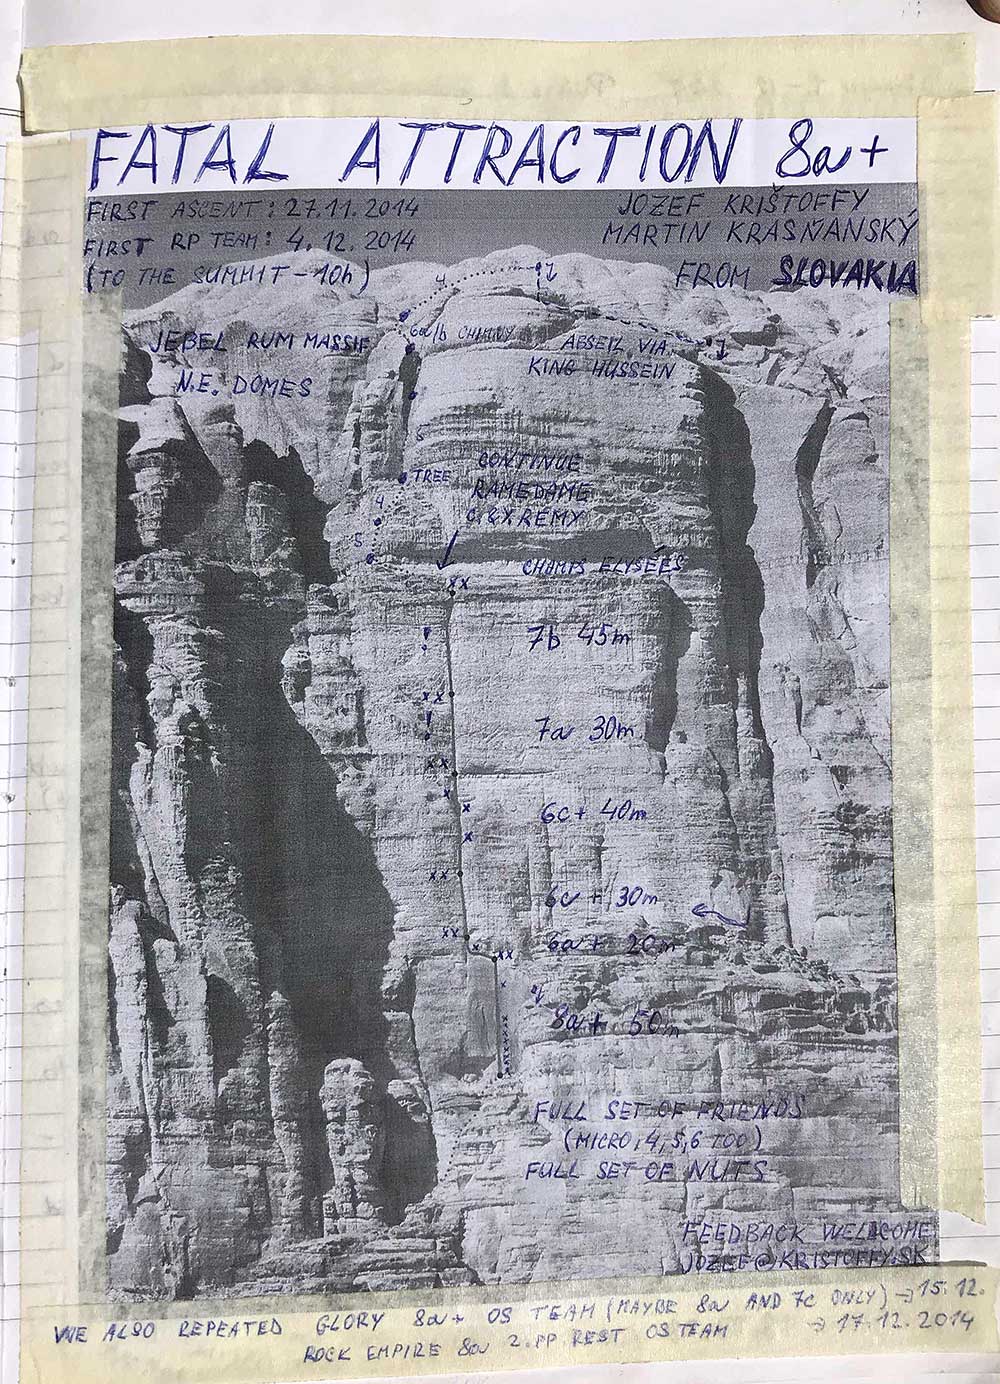 FATAL ATTRACTION 8a+
FIRST ASCENT: 27.11.2014
FIRST RP TEAM: 4.12.2014
(TO THE SUMMIT - 10h)
JOZEF KRIŠTOFFY
MARTIN KRASŇANSKÝ
FROM SLOVAKIA
4
JEBEL RUM MASSIF
N.E. DOMES
6a/b CHIMNY
ABSEIL VIA
KING HUSSEIN
TREE
4
5
CONTINUE
RAMEDAME
C. & Y. REMY
CHAMPS ELYSÉES
XX
!
7b 45m
XX
!
7a 30m
XX
X
X
6c+ 40m
X
XX
6c+ 30m
XX
X
6a+ 20m
XX
8a+ 50m
FULL SET OF FRIENDS
(MICRO, 4, 5, 6 TOO)
FULL SET OF NUTS
FEEDBACK WELLCOME
JOZEF@KRISTOFFY.SK
WE ALSO REPEATED GLORY 8a+ OS TEAM (MAYBE 8a AND 7c ONLY) → 15.12.
ROCK EMPIRE 8a 2. PP REST OS TEAM → 17.12.2014